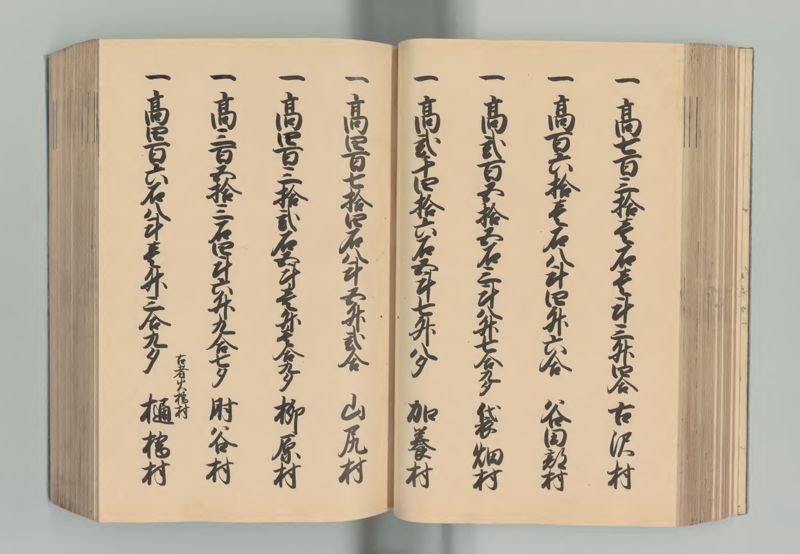 一 高七百三拾壱石壱斗三升四合 古沢村
一 高百六拾壱石八斗四升六合 谷田部村
一 高弐百五拾六石三斗八升七合五夕 袋畑村
一 高弐千四拾六石五斗七升八夕 加養村
一 高四百七拾四石八斗五升弐合 山尻村
一 高四百三拾弐石五斗壱升壱合九夕 柳原村
一 高三百五拾三石四斗六升九合七夕 肘谷村
一 高四百六石八斗壱升三合九夕 樋橋村
古者大橋村